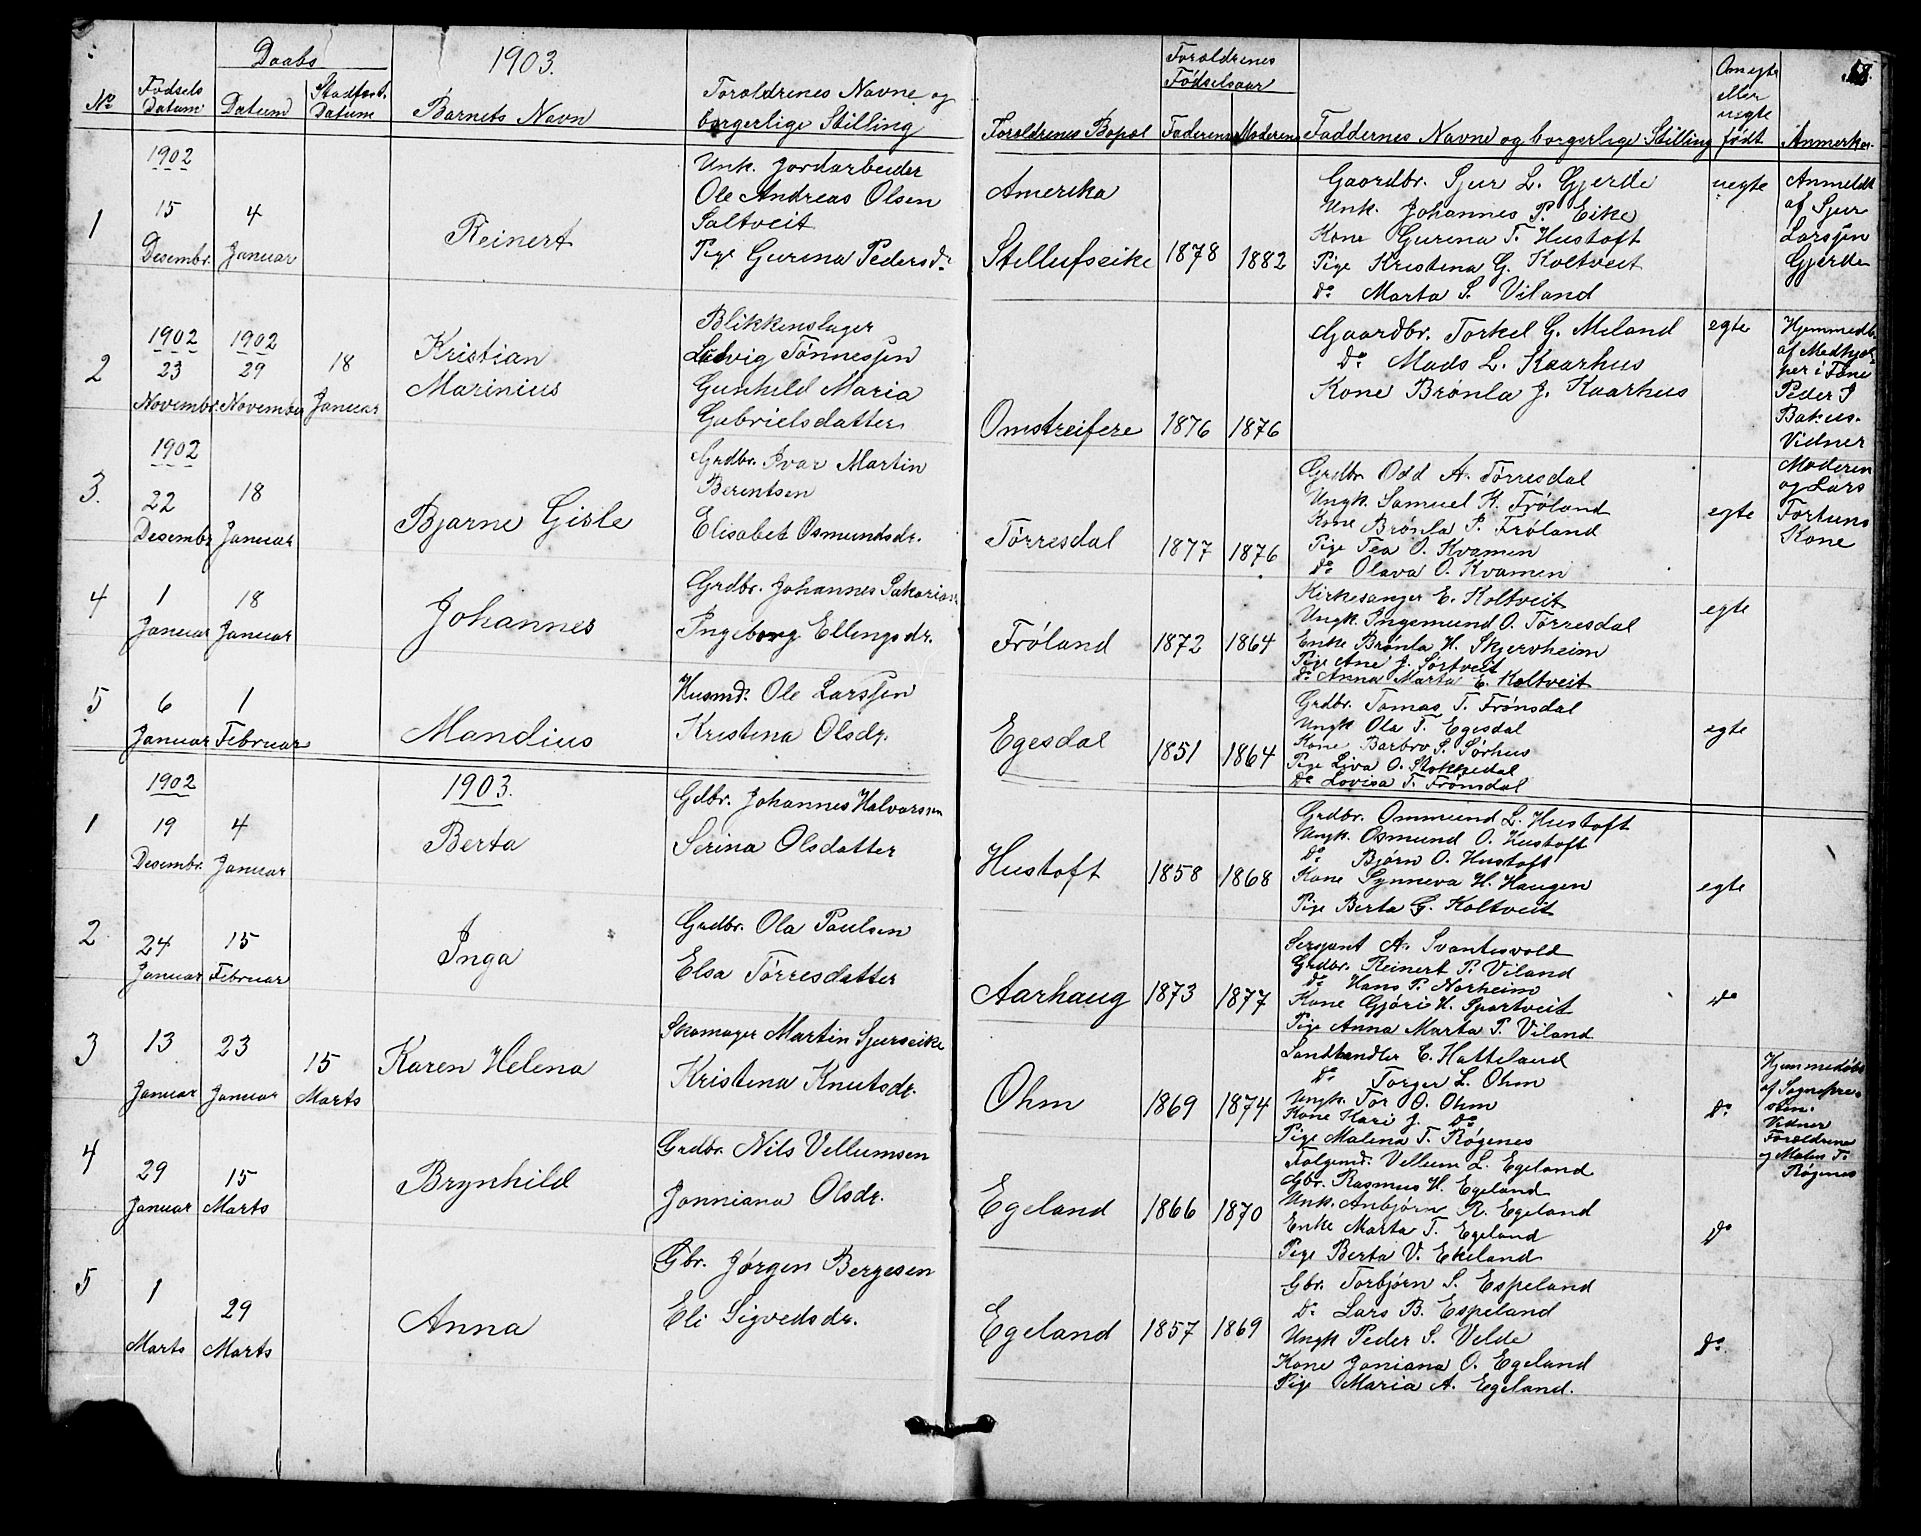 Daabs
1903.
No
Fødsels Datum
Datum
Stadfest. Datum
Barnets Navn
Foroldrenes Navne og borgerlige Stilling
Foroldrenes Bopæl
Foroldrenes Fødselsaar
Faderens
Moderens
Faddernes Navne og borgerlige Stilling
Om egte eller uegte født
Anmerkn.
18.
1
1902
15 Desembr.
4 Januar
Reinert
Unk. Jordarbeider
Ole Andreas Olsen
Saltveit
Pige Gurina Pedersdr.
Amerika
Stellufseike
1878
1882
Gaardbr. Sjur L. Gjerde
Unk. Johannes P. Eike
Kone Gurina T. Hustoft
Pige Kristina G. Koltveit
do Marta S. Viland
uegte
Anmeldt
af Sjur
Larssen
Gjerde
2
1902
23 Novembr.
1902
29 November
18 Januar
Kristian
Marinius
Blikkenslager
Ludvig Tønnessen
Gunhild Maria
Gabrielsdatter
Omstreifere
1876
1876
Gaardbr. Torkel G. Meland
do Mads L. Kaarhus
Kone Brønla J. Kaarhus
egte
Hjemmedbt.
af Medhjel-
per i
Peder S
Bakus.
Vidner
Moderen
og Lars
Fortuns
Kone
3.
1902
22 Desembr
18 Januar
Bjarne Gisle
Grdbr. Ivar Martin
Berentsen
Elisabet Osmundsdr.
Tørresdal
1877
1876
Grdbr. Odd A. Tørresdal
Ungk. Samuel K. Frøland
Kone Brønla P. Frøland
Pige Tea O. Kvamen
do Olava O. Kvamen
egte
4
1 Januar
18 Januar
Johannes
Grdbr. Johannes Sakarias.
Ingeborg Ellingsdr.
Frøland
1872
1864
Kirkesanger E. Koltveit
Ungk. Ingemund O. Tørresdal
Enke Brønla H. Skjervheim
Pige Ane J. Sørtveit
do Anna Marta E. Koltveit
egte
5
6 Januar
1 Februar
Mandius
Husmd. Ole Larssen
Kristina Olsdr.
Egesdal
1851
1864
Grdbr. Tomas T. Frønsdal
Ungk Ola T. Egesdal
Kone Barbro S. Sørhus
Pige Liva O. Stokkedal
do Lovisa T. Frønsdal
egte
1902
1903.
1
19 Desembr.
4 Januar
Berta
Gdbr. Johannes Halvorsen
Serina Olsdatter
Hustoft
1858
1868
Grdbr. Ommund L. Hustoft
Ungk. Osmund O. Hustoft
do Bjørn O. Hustoft
Kone Synneva H. Haugen
Pige Berta G. Koltveit
egte
2
24 Januar
15 Februar
Inga
Grdbr. Ola Paulsen
Elsa Tørresdatter
Aarhaug
1873
1877
Sersjant A. Svantesvold
Grdbr. Reinert P. Viland
do Hans P. Norheim
Kone Gjøri H. Spartveit
Pige Anna Marta P. Viland
do
3
13 Januar
23 Januar
15 Marts
Karen Helena
Skomager Martin Sjurseike
Kristina Knutsdr.
Ohm
1869
1874
Landhandler C. Hatteland
do Torger L. Ohm
Ungk. Tor O. Ohm
Kone Kari J. do
Pige Malena T. Røgenes
do
Hjemmedøbt
af Sognepre-
sten.
Vidner
Foroldrene
og Malen T.
Røgenes
4
29 Januar
15 Marts
Brynhild
Grdbr. Nils Vellumsen
Janniana Olsdr.
Egeland
1866
1870
Folgemd. Vellum L. Egeland
Gbr. Rasmus H. Egeland
Unk. Anbjørn R. Egeland
Enke Marta T. Egeland
Pige Berta V. Ekeland
do
5
1 Marts
29 Marts
Anna
Gbr. Jørgen Bergesen
Eli Sigvedsdr.
Egeland
1857
1869
Gbr. Torbjørn S. Espeland
do Lars B. Espeland
Ungk Peder S. Velde
Kone Janiana O. Egeland
Pige Maria A. Egeland.
do.